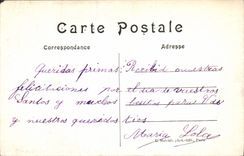 Carte Postale
Correspondance
Adresse
Queridas primas: Recibid nuestras
felicitaciones por el dia de vuestros
Santos y muchos
y nuestros queridos tios
Maria Lola